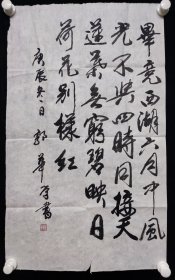 畢竟西湖六月中風
光不與四時同接天
蓮葉無窮碧映日
荷花別樣紅
庚辰冬日郭華